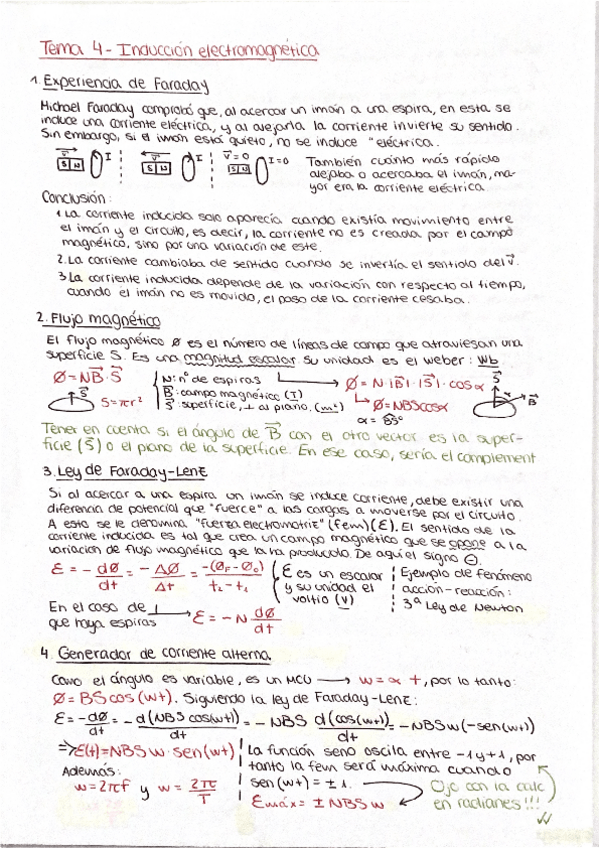 Tema 4 - Inducción electromagnética
1. Experiencia de Faraday
Michael Faraday comprobó que, al acercar un imán a una espira, en esta se
induce una corriente eléctrica, y al alejarla la corriente invierte su sentido.
Sin embargo, si el imán está quieto, no se induce " eléctrica.
v S N I
v S N I
v = 0 S N I = 0
También cuánto más rápido
alejaba o acercaba el imán, ma-
yor era la corriente eléctrica.
Conclusión:
1. La corriente inducida solo aparecía cuando existía movimiento entre
el imán y el circuito, es decir, la corriente no es creada por el campo
magnético, sino por una variación de este.
2. La corriente cambiaba de sentido cuando se invertía el sentido del v⃗.
3. La corriente inducida depende de la variación con respecto al tiempo,
cuando el imán no es movido, el paso de la corriente cesaba.
2. Flujo magnético
El flujo magnético Ø es el número de líneas de campo que atraviesan una
superficie S. Es una magnitud escalar su unidad es el weber: Wb
Ø = N B⃗ · S⃗
N: nº de espiras
B⃗: campo magnético (T)
S⃗: superficie, ⊥ al plano. (m²)
S⃗ S = πr²
Ø = N · |B⃗| · |S⃗| · cos α
Ø = NBS cos α
S⃗ α B⃗
Tener en cuenta si el ángulo de B⃗ con el otro vector es la super-
ficie (S⃗) o el plano de la superficie. En ese caso, sería el complement
3. Ley de Faraday-Lenz
Si al acercar a una espira un imán se induce corriente, debe existir una
diferencia de potencial que "fuerce" a las cargas a moverse por el circuito.
A esto se le denomina "fuerza electromotriz" (fem)(ε). El sentido de la
corriente inducida es tal que crea un campo magnético que se opone a la
variación de flujo magnético que la ha producido. De aquí el signo ⊖.
ε = - dØ/dt = - ΔØ/Δt = -(Ø_F - Ø_0)/t₂ - t₁
ε es un escalar
y su unidad el
voltio (V)
Ejemplo de fenómeno
acción-reacción:
3ª Ley de Newton
En el caso de
que haya espiras → ε = - N dØ/dt
4. Generador de corriente alterna
Como el ángulo es variable, es un MCU → w = α t, por lo tanto:
Ø = BS cos (wt). Siguiendo la ley de Faraday-Lenz:
ε = -dØ/dt = - d(NBS cos(wt))/dt = - NBS d(cos(wt))/dt = - NBSw(-sen(wt))
=> ε(t) = NBSw · sen(wt)
Además:
w = 2πf y w = 2π/T
La función seno oscila entre -1 y +1, por
tanto la fem será máxima cuando
sen (wt) = ± 1.
ε máx = ± NBSw
Ojo con la calc
en radianes !!!